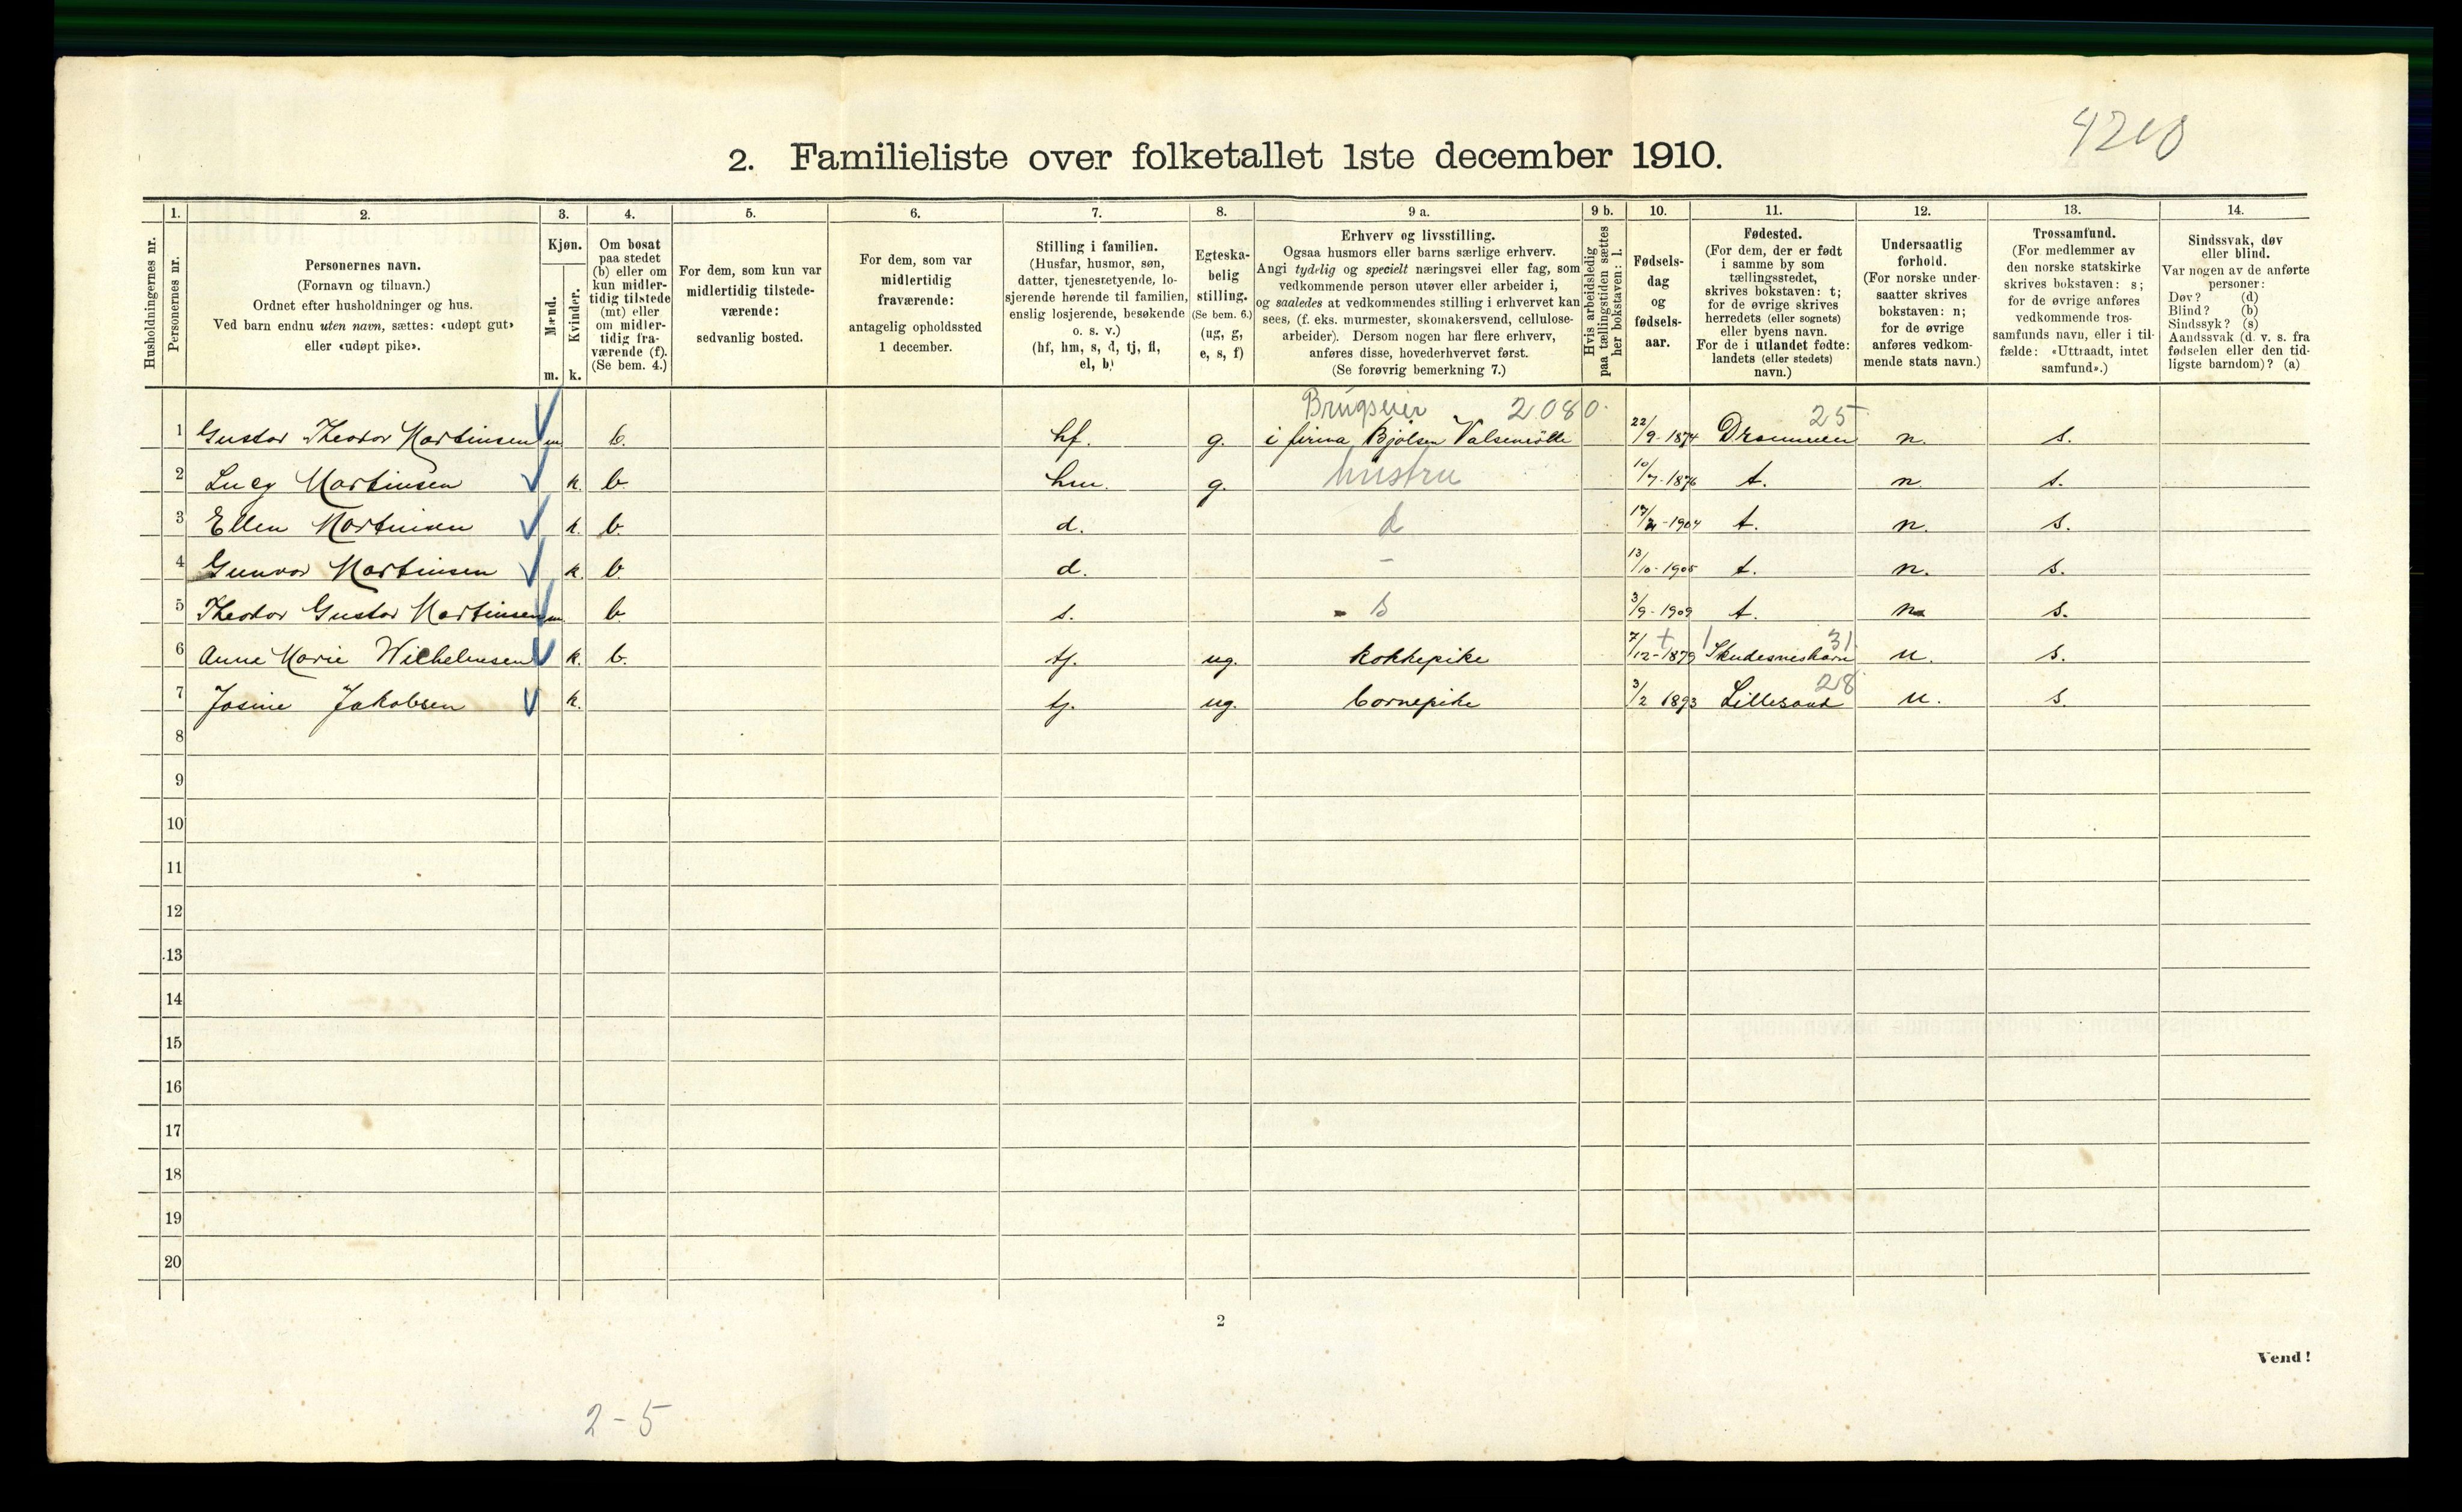 4210
2. Familieliste over folketallet 1ste december 1910.
Husholdningernes nr.
1.
Personernes nr.
2.
Personernes navn.
(Fornavn og tilnavn.)
Ordnet efter husholdninger og hus.
Ved barn endnu uten navn, sættes: «udøpt gut»
eller «udøpt pike».
3.
Kjøn.
Mænd.
Kvinder.
m. k.
4.
Om bosat
paa stedet
(b) eller om
kun midler-
tidig tilstede
(mt) eller
om midler-
tidig fra-
værende (f).
(Se bem. 4.)
5.
For dem, som kun var
midlertidig tilstede-
værende:
sedvanlig bosted.
6.
For dem, som var
midlertidig
fraværende:
antagelig opholdssted
1 december.
7.
Stilling i familien.
(Husfar, husmor, søn,
datter, tjenestetyende, lo-
sjerende hørende til familien,
enslig losjerende, besøkende
o. s. v.)
(hf, hm, s, d, tj, fl,
el, b)
8.
Egteska-
belig
stilling.
(Se bem. 6.)
(ug, g,
e, s, f)
9 a.
Erhverv og livsstilling.
Ogsaa husmors eller barns særlige erhverv.
Angi tydelig og specielt næringsvei eller fag, som
vedkommende person utøver eller arbeider i,
og saaledes at vedkommendes stilling i erhvervet kan
sees, (f. eks. murmester, skomakersvend, cellulose-
arbeider). Dersom nogen har flere erhverv,
anføres disse, hovederhvervet først.
(Se forøvrig bemerkning 7.)
9 b.
Hvis arbeidsledig
paa tællingstiden sættes
her bokstaven: l.
10.
Fødsels-
dag
og
fødsels-
aar.
11.
Fødested.
(For dem, der er født
i samme by som
tællingsstedet,
skrives bokstaven: t;
for de øvrige skrives
herredets (eller sognets)
eller byens navn.
For de i utlandet fødte:
landets (eller stedets)
navn.)
12.
Undersaatlig
forhold.
(For norske under-
saatter skrives
bokstaven: n;
for de øvrige
anføres vedkom-
mende stats navn.)
13.
Trossamfund.
(For medlemmer av
den norske statskirke
skrives bokstaven: s;
for de øvrige anføres
vedkommende tros-
samfunds navn, eller i til-
fælde: «Uttraadt, intet
samfund».)
14.
Sindssvak, døv
eller blind.
Var nogen av de anførte
personer:
Døv? (d)
Blind? (b)
Sindssyk? (s)
Aandssvak (d. v. s. fra
fødselen eller den tid-
ligste barndom)? (a)
Brugseier 2080. 25
1 Gustav Theodor Martinsen m b. hf. g. i firma Bjølsen Valsemølle 22/9-1874 Drammen n. s.
2 Lucy Martinsen k. b. hm. g. hustru 10/7-1876 t. n. s.
3 Ellen Martinsen k. b. d. d -1904 t. n. s.
4 Gunvor Martinsen k. b. d. – 13/10-1905 t. n. s.
5 Theodor Gustav Martinsen m b s. s 3/9-1909 t. n s.
31
6 Anna Marie Wilhelmsen k. b. tj. ug. kokkepike 7/12-1879 Skudesneshavn n. s.
28
7 Josine Jakobsen k. tj. ug. barnepike 3/2 1893 Lillesand n. s.
8
9
10
11
12
13
14
15
16
17
18
19
20
2
Vend!
2-5